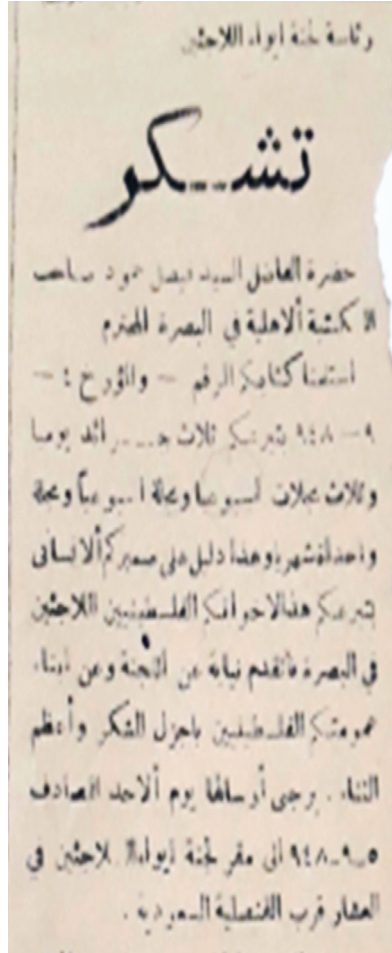 رئاسة لجنة ايواء اللاجئين
تشـــكر
حضرة الفاضل السيد فيصل حمود صاحب
المكتبة ألاهلية في البصرة المحترم
استلمنا كتابكم الرقم – والمؤرخ ٤ –
٩ – ٩٤٨ تبرعكم ثلاث جـــرائد يوميا
وثلاث مجلات اسبوعيا ومجلة اسبوعياً ومجلة
واحدة شهريا وهذا دليل على ضميركم ألانسانى
تبرعكم هذا لاخوانكم الفلسطينيين اللاجئين
في البصرة فاتقدم نيابة عن اللجنة وعن ابناء
عمومتكم الفلسطينيين باجزل الشكر وأعظم
الثناء . يرجى أرسالها يوم ألاحد المصادف
٥ــ٩ــ٩٤٨ الى مقر لجنة ايواء اللاجئين في
العشار قرب القنصلية السعودية .